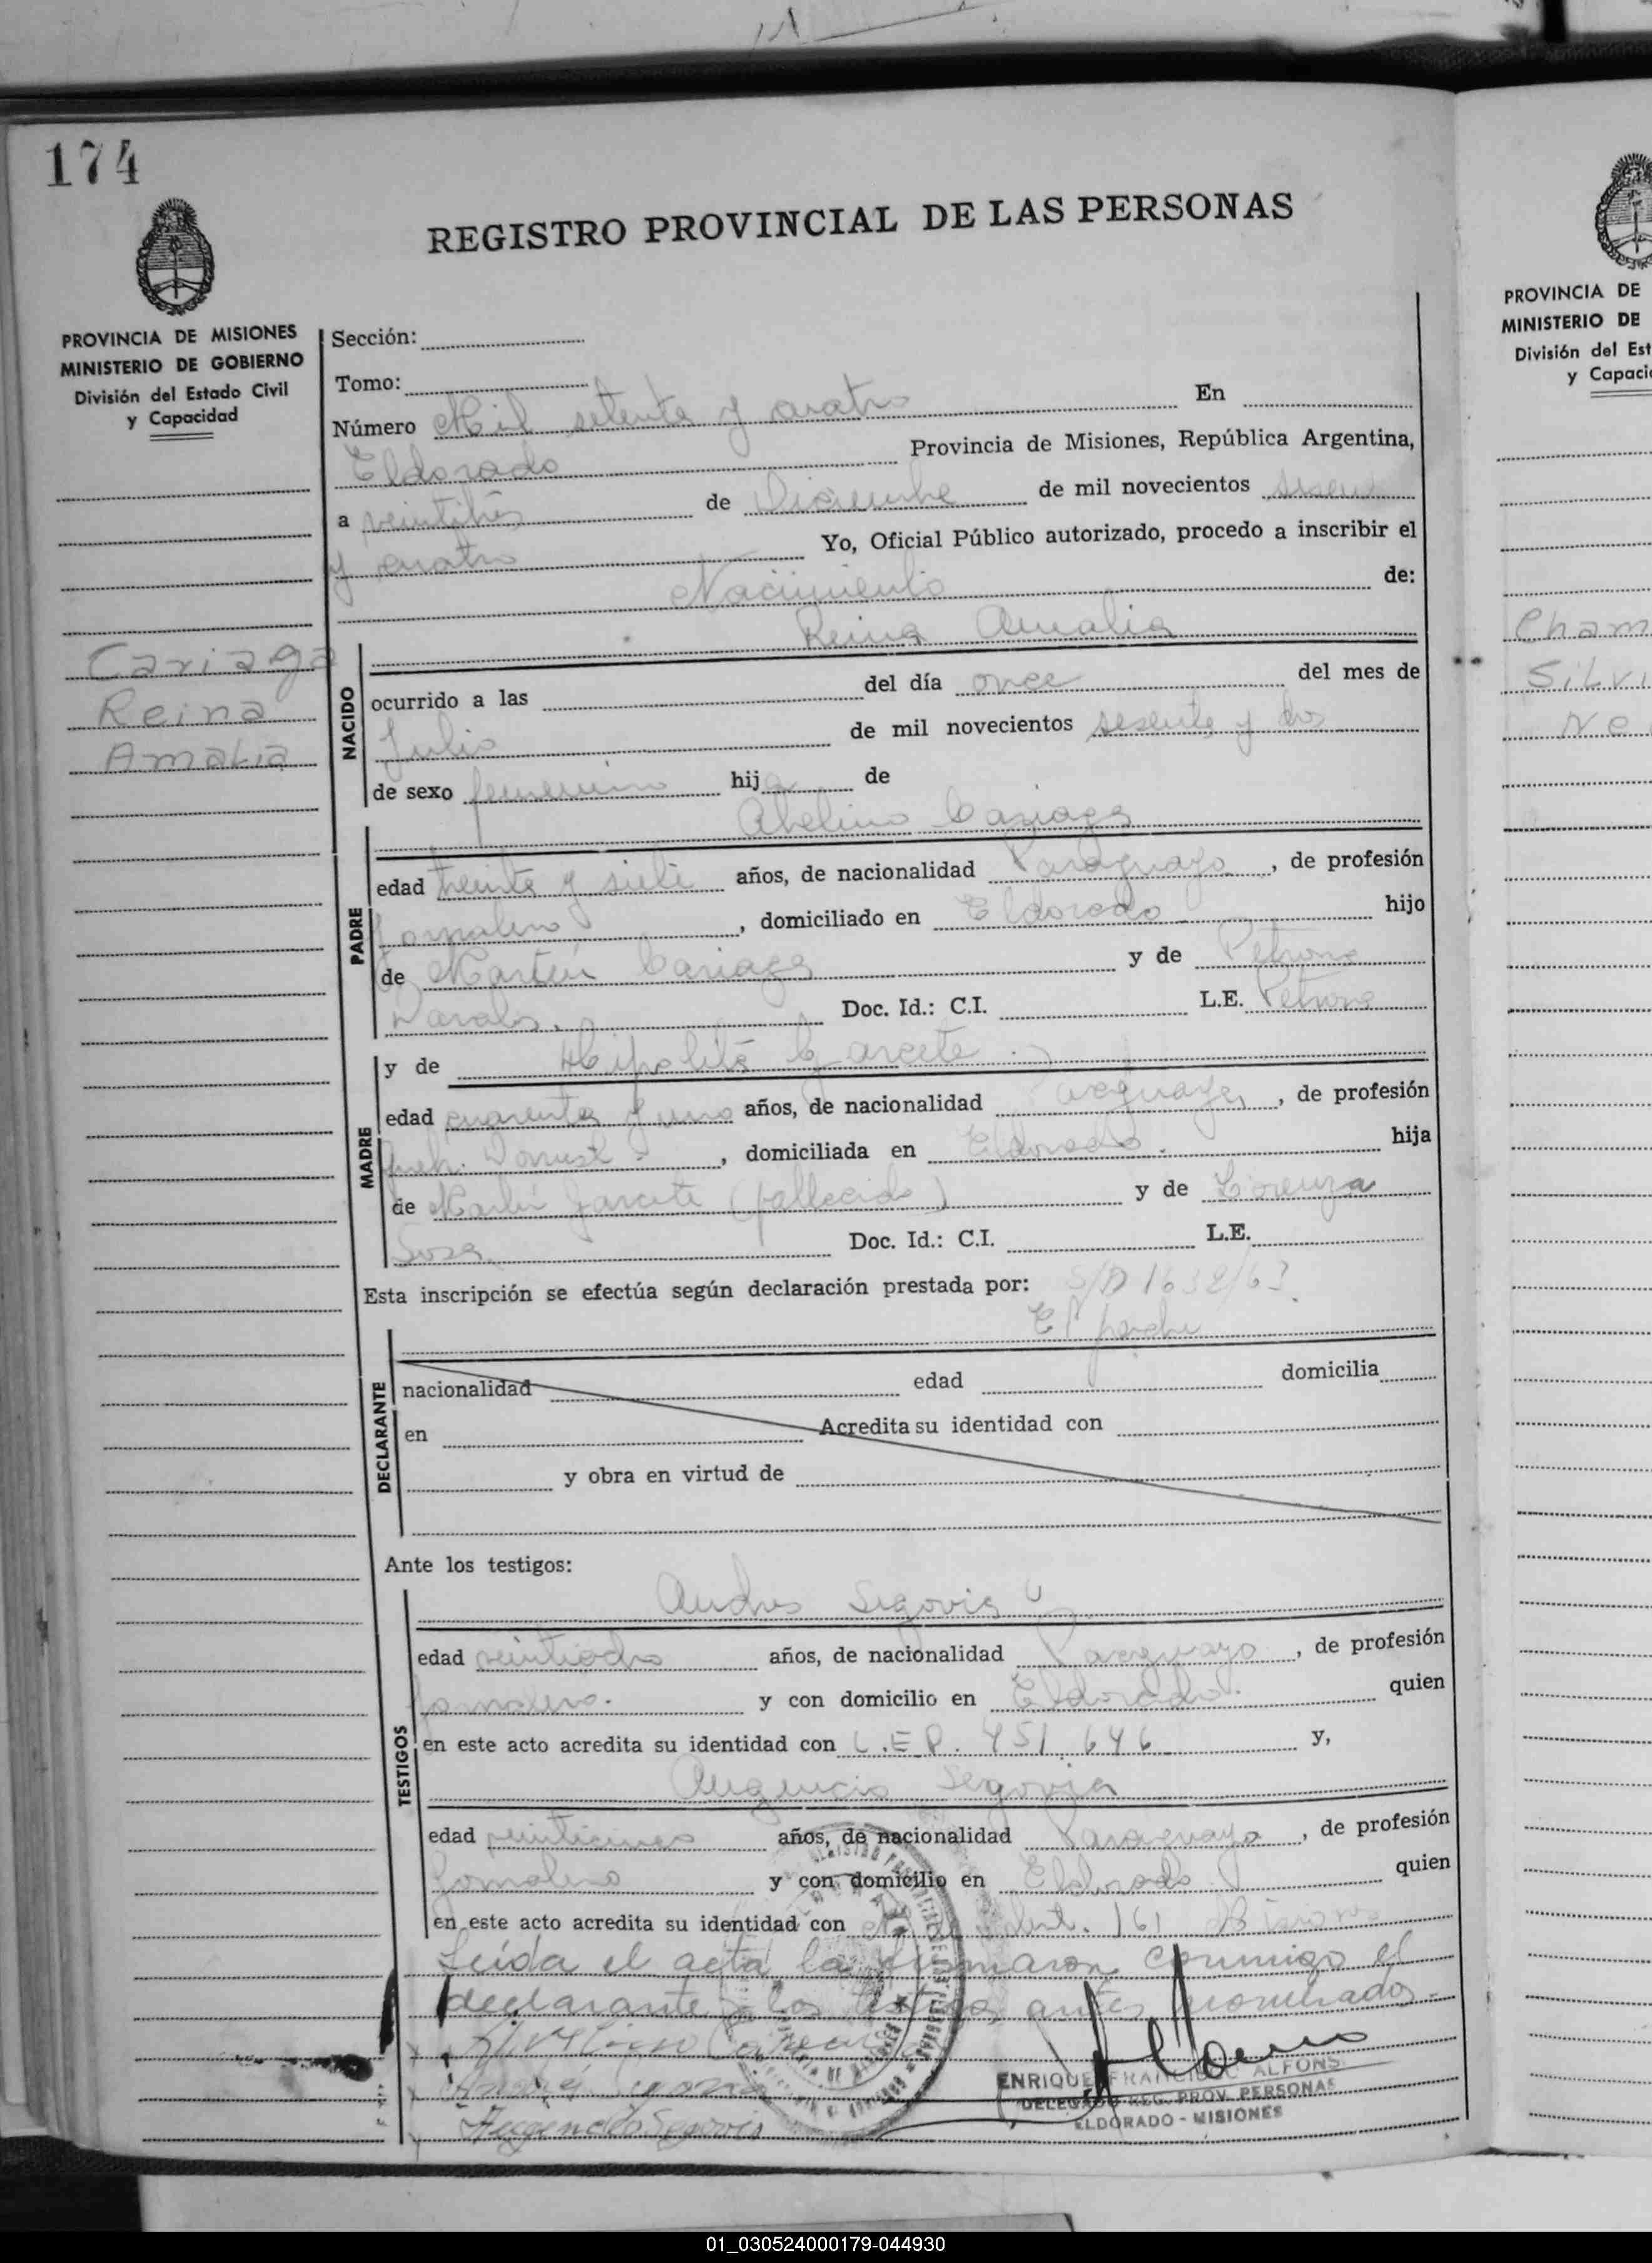 174
REGISTRO PROVINCIAL DE LAS PERSONAS
PROVINCIA DE MISIONES
MINISTERIO DE GOBIERNO
División del Estado Civil
y Capacidad
Cariaga
Reina
Amalia
Sección:
Tomo:
Número Mil setenta y cuatro En
Eldorado Provincia de Misiones, República Argentina,
a veintitrés de Diciembre de mil novecientos sesenta
y cuatro Yo, Oficial Público autorizado, procedo a inscribir el
Nacimiento de:
Reina Amalia
NACIDO
ocurrido a las del día once del mes de
Julio de mil novecientos sesenta y dos
de sexo femenino hija de
Abelino Cariaga
PADRE
edad treinta y siete años, de nacionalidad Paraguaya, de profesión
Jornalero, domiciliado en Eldorado hijo
de Martín Cariaga y de Petrona
Doc. Id.: C.I. L.E. Petrona
MADRE
y de Hipolita Garcete
edad cuarenta y uno años, de nacionalidad Paraguaya, de profesión
, domiciliada en Eldorado. hija
de Martín Garcete (fallecido) y de Lorenza
Sosa Doc. Id.: C.I. L.E.
Esta inscripción se efectúa según declaración prestada por: S/D 1632/63.
El padre
DECLARANTE
nacionalidad edad domicilia
en Acredita su identidad con
y obra en virtud de
Ante los testigos:
TESTIGOS
Andres Segovia
edad veintiocho años, de nacionalidad Paraguaya, de profesión
Jornalero. y con domicilio en Eldorado. quien
en este acto acredita su identidad con C.E.P. 451.646 y,
Augencio Segovia
edad veinticinco años, de nacionalidad Paraguaya, de profesión
Jornalero y con domicilio en Eldorado quien
en este acto acredita su identidad con 161
Leída el acta la firmaron conmigo el
declarante y los testigos antes nombrados.-
ENRIQUE FRANCISCO ALFONS
DELEGADO REG. PROV. PERSONAS
ELDORADO - MISIONES
PROVINCIA DE
MINISTERIO DE
División del Est
y Capaci
Cham
Silvi
Ne
01_030524000179-044930